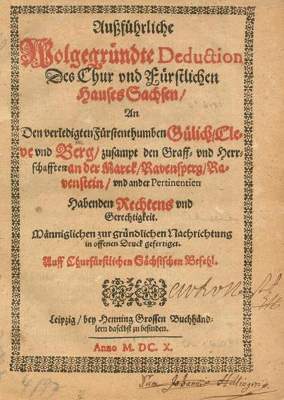 Außführliche
Wolgegründte Deduction
Des Chur vnd Fürstlichen
Hauses Sachsen/
An
Den verledigten Fürstenthumben Gülich/Cle-
ve vnd Berg/ zusampt den Graff- vnd Herr-
schafften an der Marck/Ravensperg/Ra-
venstein/ vnd ander Pertinentien
Habenden Rechtens vnd
Gerechtigkeit.
Männiglichen zur gründlichen Nachrichtung
in offenen Druck gefertiget.
Auff Churfürstlichen Sächsischen Befehl.
Leipzig/ bey Henning Grossen Buchhänd-
lern daselbst zu befinden.
Anno M. DC. X.